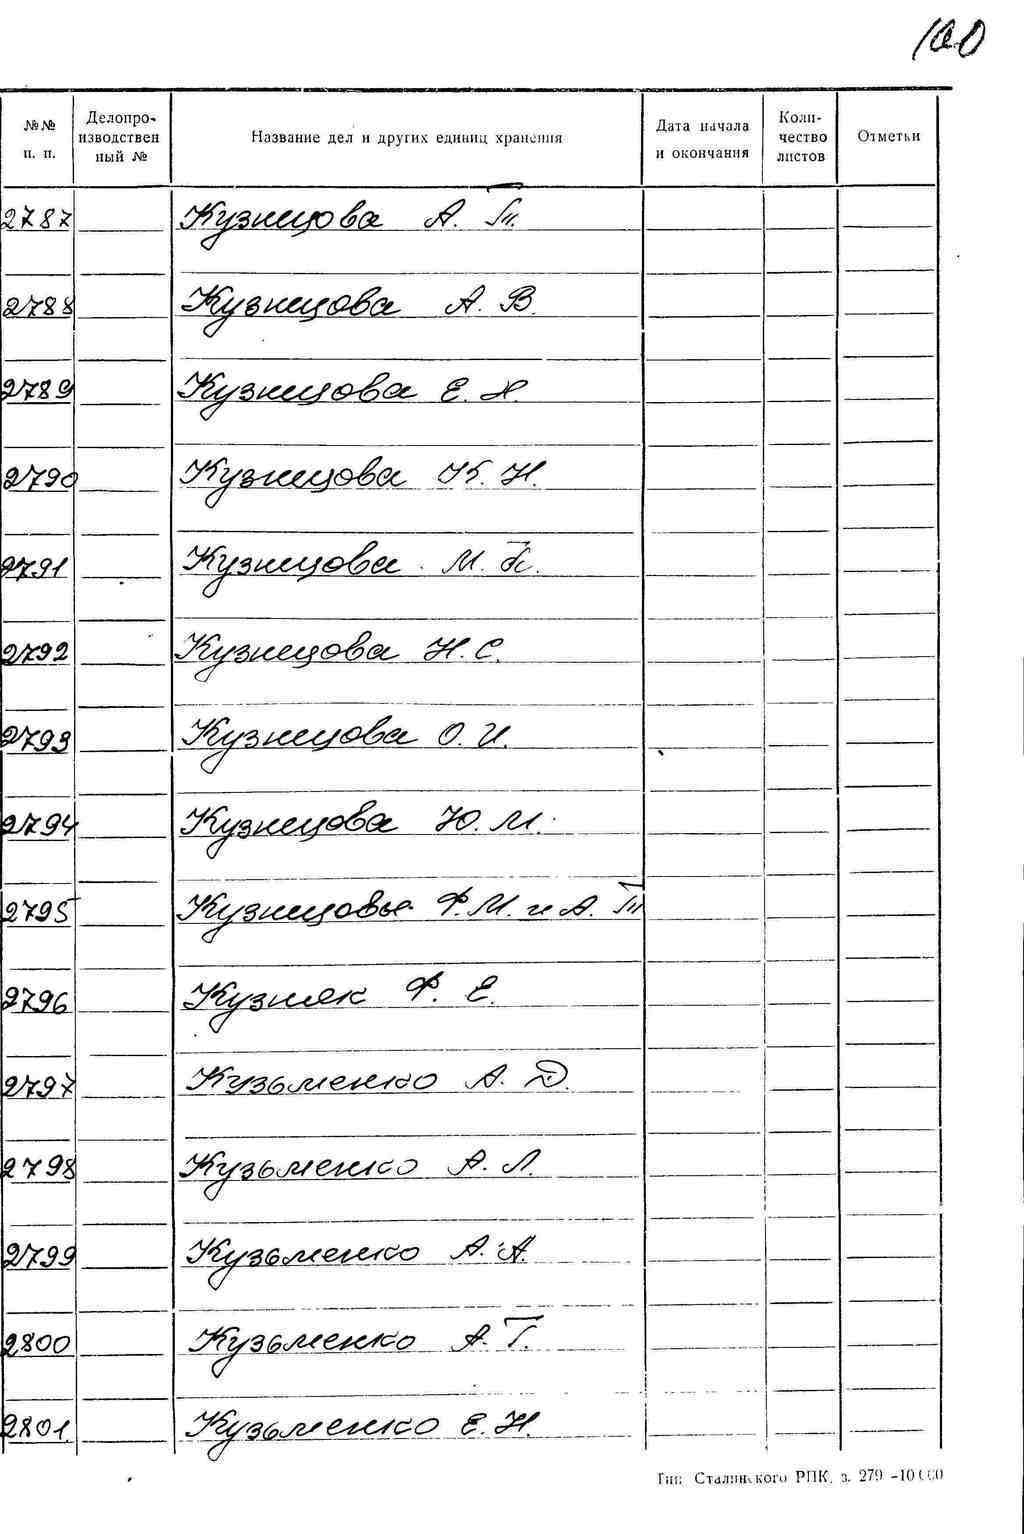 100
№№ п. п. Делопро- изводствен ный № Название дел и других единиц хранения Дата начала и окончания Коли- чество листов Отметки
2787 Кузнецова А. Т.
2788 Кузнецова А. В.
2789 Кузнецова Е. Н.
2790 Кузнецова К. Н.
2791 Кузнецова М.
2792 Кузнецова Н. С.
2793 Кузнецова О. И.
2794 Кузнецова Ю. М.
2795 Кузнецовы Ф. М. и А. Т
2796 Кузняк Ф. Е.
2797 Кузьменко А. Д.
2798 Кузьменко А. Л.
2799 Кузьменко А. А.
2800 Кузьменко А. Г.
2801. Кузьменко Е. Н.
Тип. Сталинского РПК. з. 279 -10 000